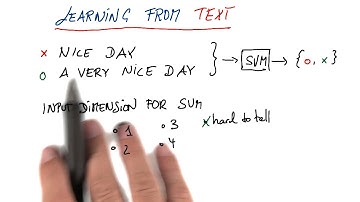 LEARNING FROM TEXT
× NICE DAY
o A VERY NICE DAY } → SVM → {o, ×}
INPUT DIMENSION FOR SVM
o 1 o 3 × hard to tell
o 2 o 4